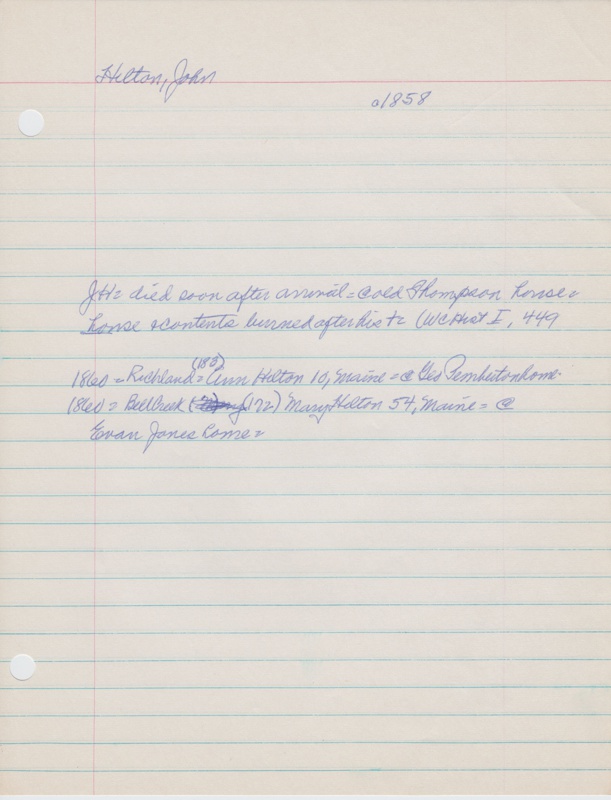 Hilton, John
a1858
JH = died soon after arrival = @ old Thompson house =
house & contents burned after his t = (WC Hist I, 449
(183)
1860 = Richland = Ann Hilton 10, Maine = @ Geo Pemberton home.
1860 = Bell Creek (172) Mary Hilton 54, Maine = @
Evan Jones home =